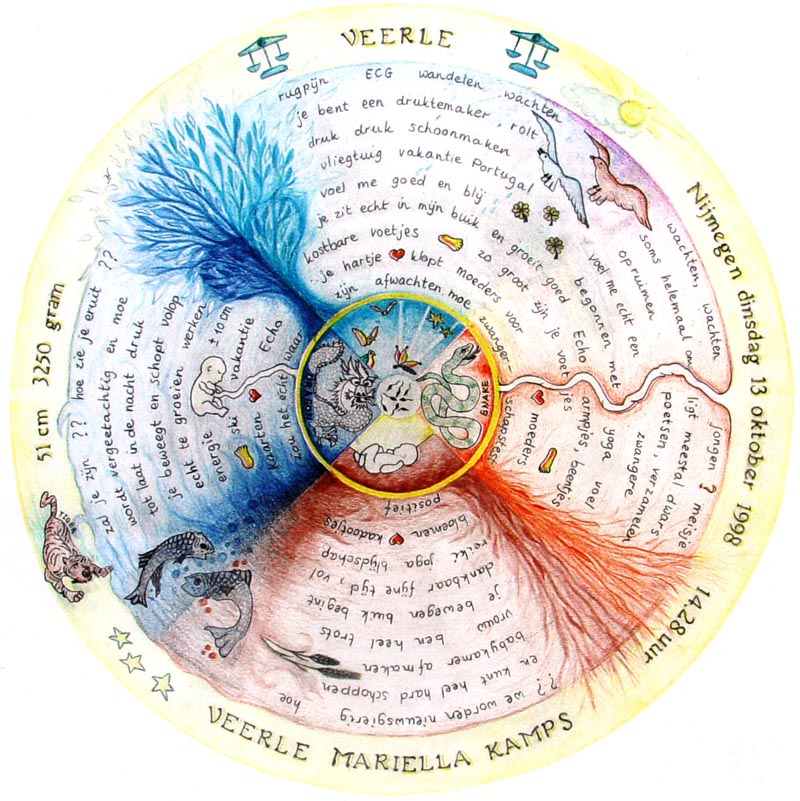 VEERLE
Nijmegen dinsdag 13 oktober 1998
14.28 uur
VEERLE MARIELLA KAMPS
51 cm 3250 gram
TIGER
SNAKE
rugpijn ECG wandelen wachten
wachten, wachten
je bent een druktemaker, rolt
soms helemaal om
druk druk schoonmaken
opruimen
vliegtuig vakantie Portugal
voel me echt een
voel me goed en blij
begonnen met
je zit echt in mijn buik en groeit goed Echo
kostbare voetjes zo groot zijn je voetjes
je hartje klopt moeders voor
zijn afwachten moe zwanger-
schapstest
moeders
armpjes, beentjes
yoga voel
zwangere
poetsen, verzamelen
ligt meestal dwars
jongen ? meisje
positief
bloemen kadootjes
reiki joga blijdschap
dankbaar fijne tijd, vol
je bewegen buik begint
vrouw ben heel trots
babykamer afmaken
en kunt heel hard schoppen
?? we worden nieuwsgierig hoe
zal je zijn ?? hoe zie je eruit ??
wordt vergeetachtig en moe
tot laat in de nacht druk
je beweegt en schopt volop
echt te groeien werken
energie ± 10 cm
ski vakantie
kaarten Echo
zou het echt waar